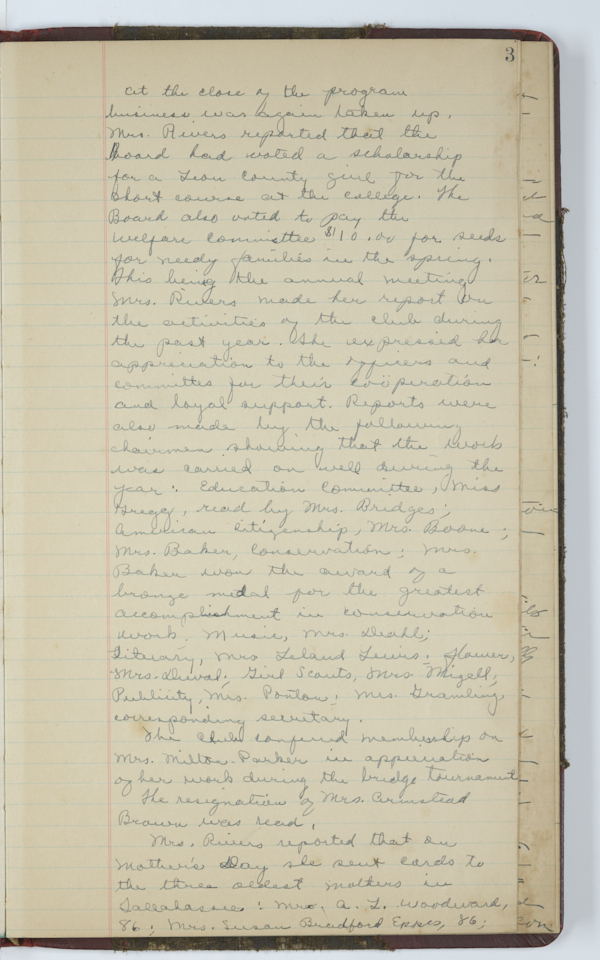 3
At the close of the program
business was again taken up.
Mrs. Rivers reported that the
Board had voted a scholarship
for a Leon County girl for the
short course at the college. The
Board also voted to pay the
Welfare Committee $10.00 for seeds
for needy families in the spring.
This being the annual meeting
Mrs. Rivers made her report on
the activities of the club during
the past year. She expressed her
appreciation to the officers and
committes for their coöperation
and loyal support. Reports were
also made by the following
chairmen showing that the work
was carried on well during the
year: Education Committee, Miss
Gregg, read by Mrs. Bridges;
American Citizenship, Mrs. Boone;
Mrs. Baker, Conservation; Mrs.
Baker won the award of a
bronze medal for the greatest
accomplishment in conservation
work. Music, Mrs. Deahl;
Literary, Mrs. Leland Lewis; Flower,
Mrs. Duval; Girl Scouts, Mrs. Mizell;
Publicity, Mrs. Ponton; Mrs. Gramling
corresponding secretary.
The Club conferred membership on
Mrs. Milton Parker in appreciation
of her work during the bridge tournament
The resignation of Mrs. Armstead
Brown was read.
Mrs. Rivers reported that on
Mother's Day she sent cards to
the three oldest mothers in
Tallahassee: Mrs. A. L. Woodward,
86; Mrs. Susan Bradford Eppes, 86;